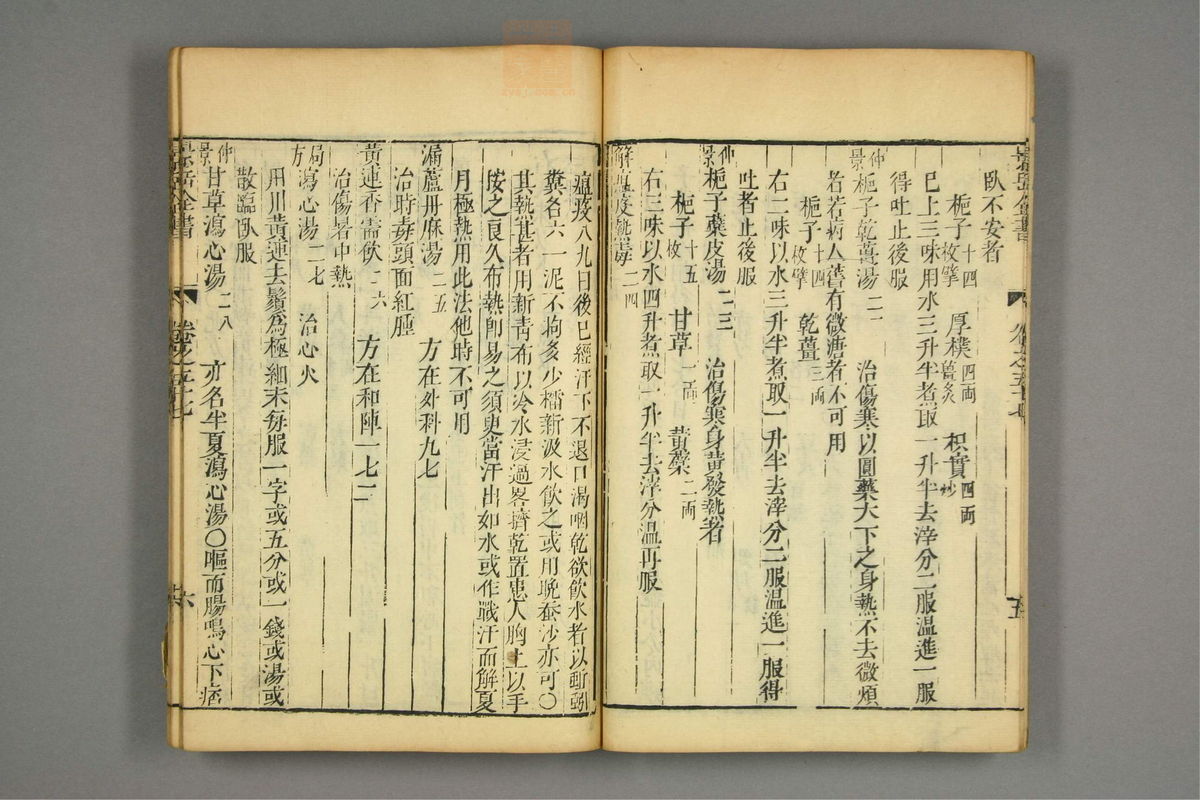 景岳全書 卷之五十七 五
臥不安者
梔子十四枚擘 厚樸四兩薑炙 枳實四兩炒
已上三味用水三升半煮取一升半去滓分二服溫進一服
得吐止後服
仲景梔子乾薑湯二二 治傷寒以圓藥大下之身熱不去微煩
者若病人舊有微溏者不可用
梔子十四枚擘 乾薑三兩
右二味以水三升半煮取一升半去滓分二服溫進一服得
吐者止後服
仲景梔子蘗皮湯二三 治傷寒身黃發熱者
梔子十五枚 甘草一兩 黃蘗二兩
右三味以水四升煮取一升半去滓分溫再服
解瘟疫熱毒二四
瘟疫八九日後已經汗下不退口渴咽乾欲飲水者以蚯蚓
糞名六一泥不拘多少擂新汲水飲之或用晚蚕沙亦可〇
其熱甚者用新青布以冷水浸過畧擠乾置患人胸上以手
按之良久布熱卽易之須臾當汗出如水或作戰汗而解夏
月極熱用此法他時不可用
漏蘆升麻湯二五 方在外科九七
治時毒頭面紅腫
黃連香薷飲二六 方在和陣一七二
治傷暑中熱
局方瀉心湯二七 治心火
用川黃連去鬚為極細末每服一字或五分或一錢或湯或
散臨臥服
仲景甘草瀉心湯二八 亦名半夏瀉心湯〇嘔而腸鳴心下痞
景岳全書 卷之五十七 六